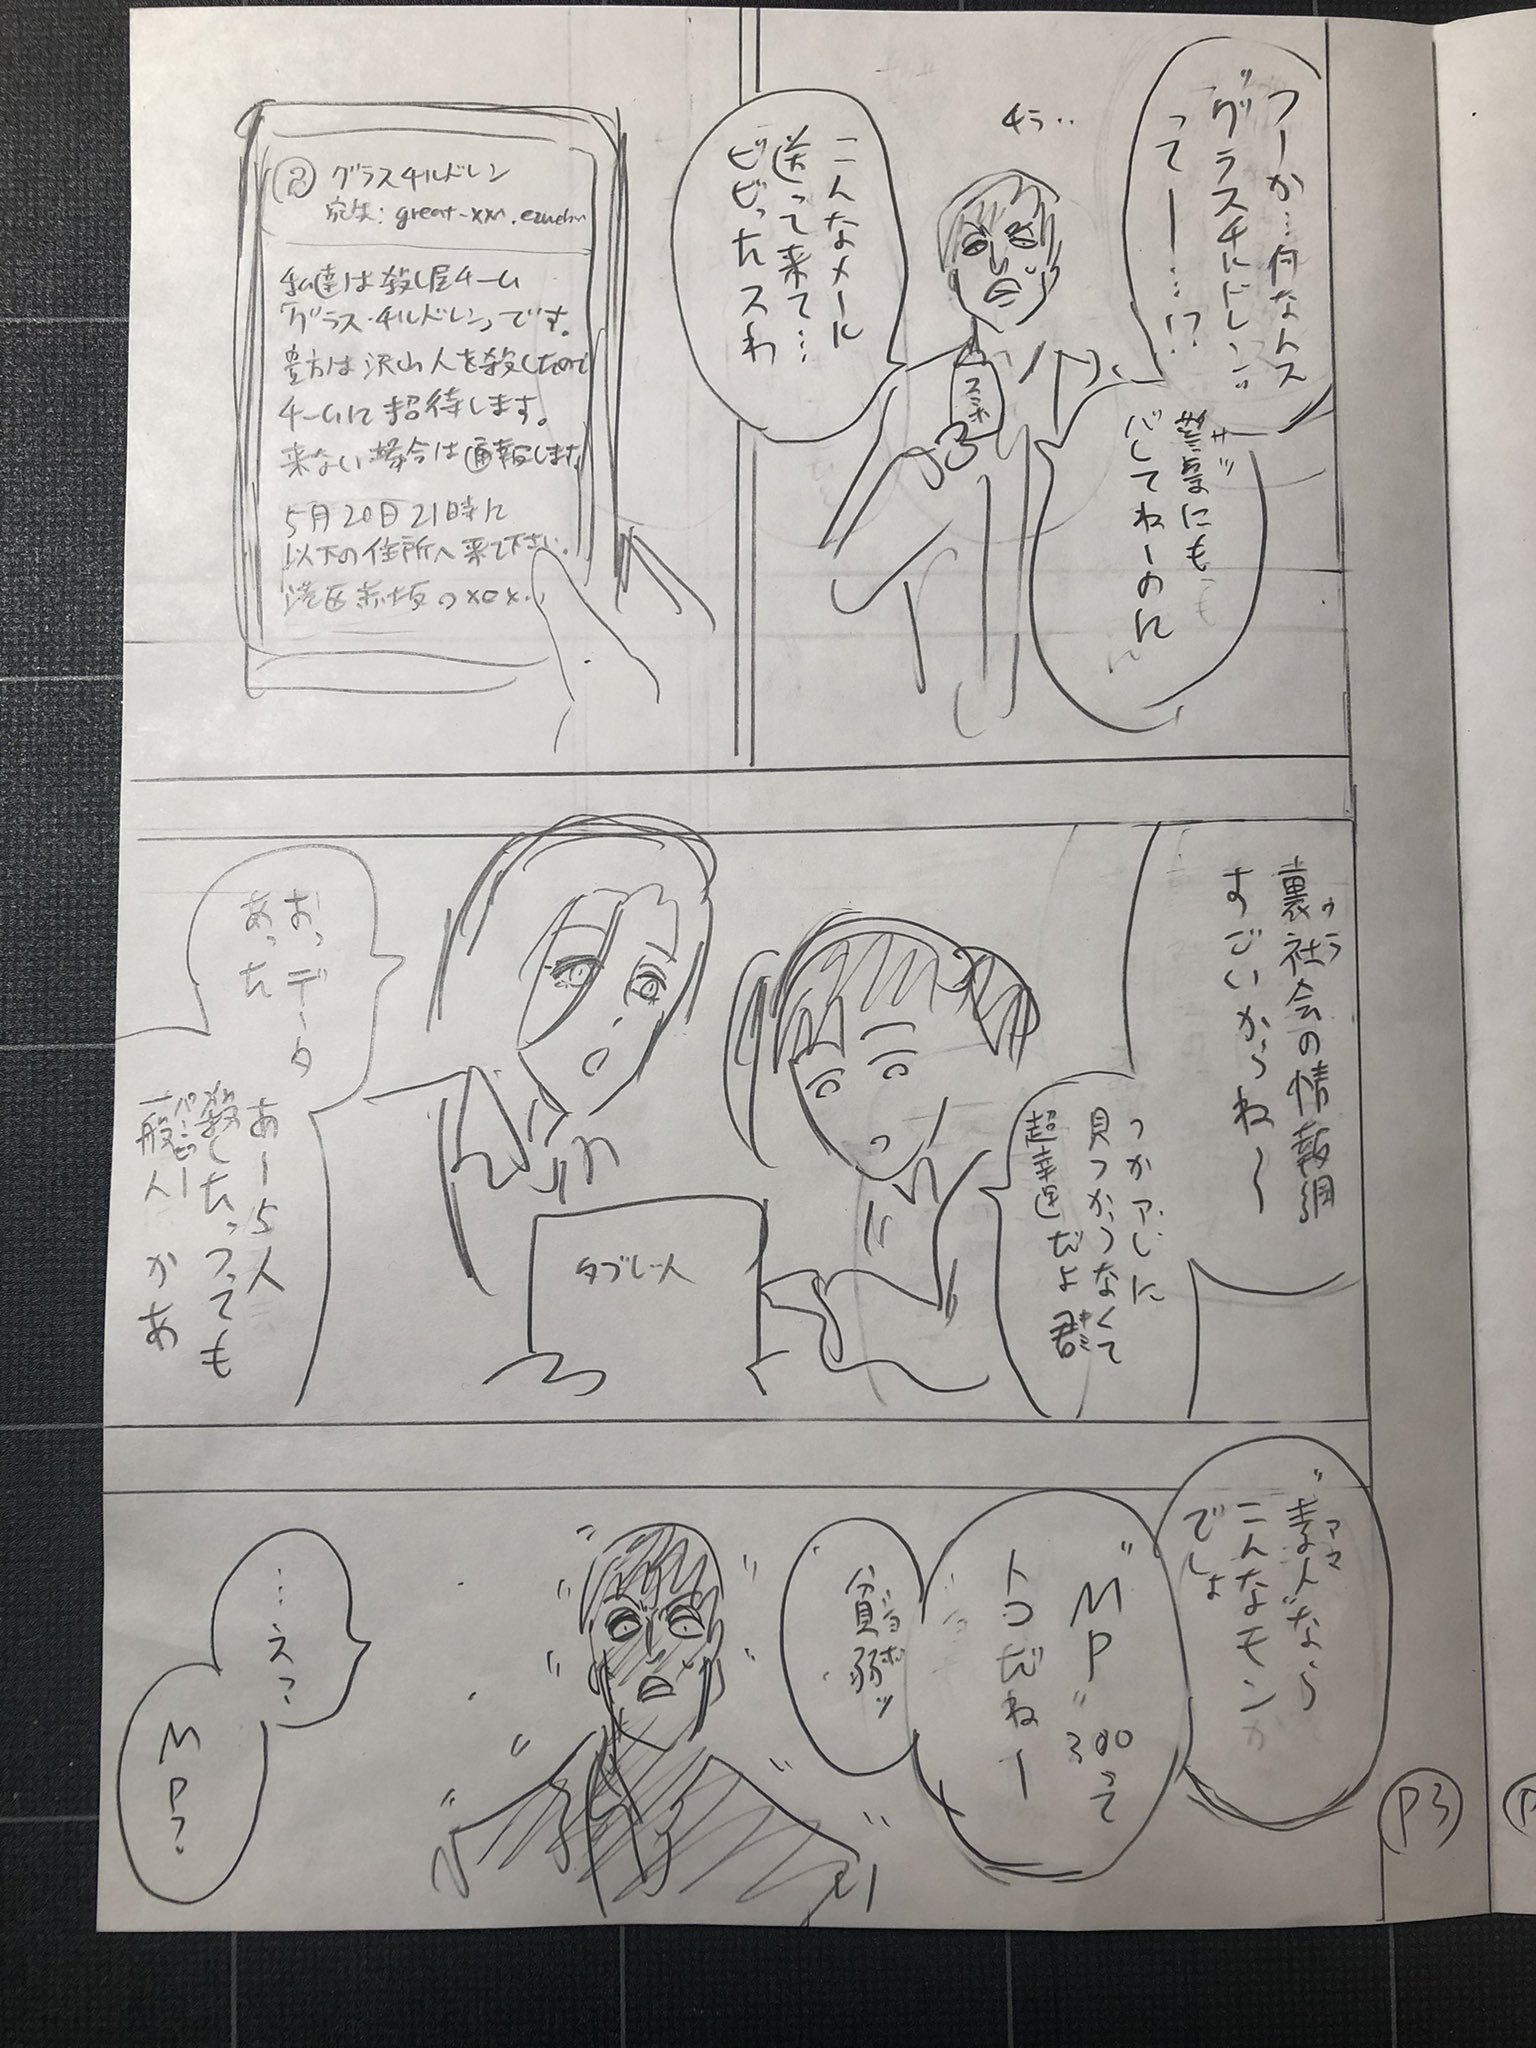 つーか…何なんス
"グラスチルドレン"
って―…!?
警察にも
サツ
バレてねーのに
チラ‥
スマホ
こんなメール
送って来て…
ビビったスわ
グラスチルドレン
宛先: great-xxx.
私達は殺し屋チーム
「グラス・チルドレン」です。
貴方は沢山人を殺したので
チームに招待します。
来ない場合は通報します
5月20日21時に
以下の住所へ来て下さい。
港区赤坂の×○×‥
裏社会の情報網
ウラ
すごいからね〜
つかアレに
見つからなくて
超幸運だよ君
キミ
タブレット
おっデータ
あった
あー5人
殺したっつっても
一般人かあ
パンピー
"素人"なら
アマ
こんなモンか
でしょ
"MP"300って
トコだねー
貧弱ッ
…えっ
MP?
P3